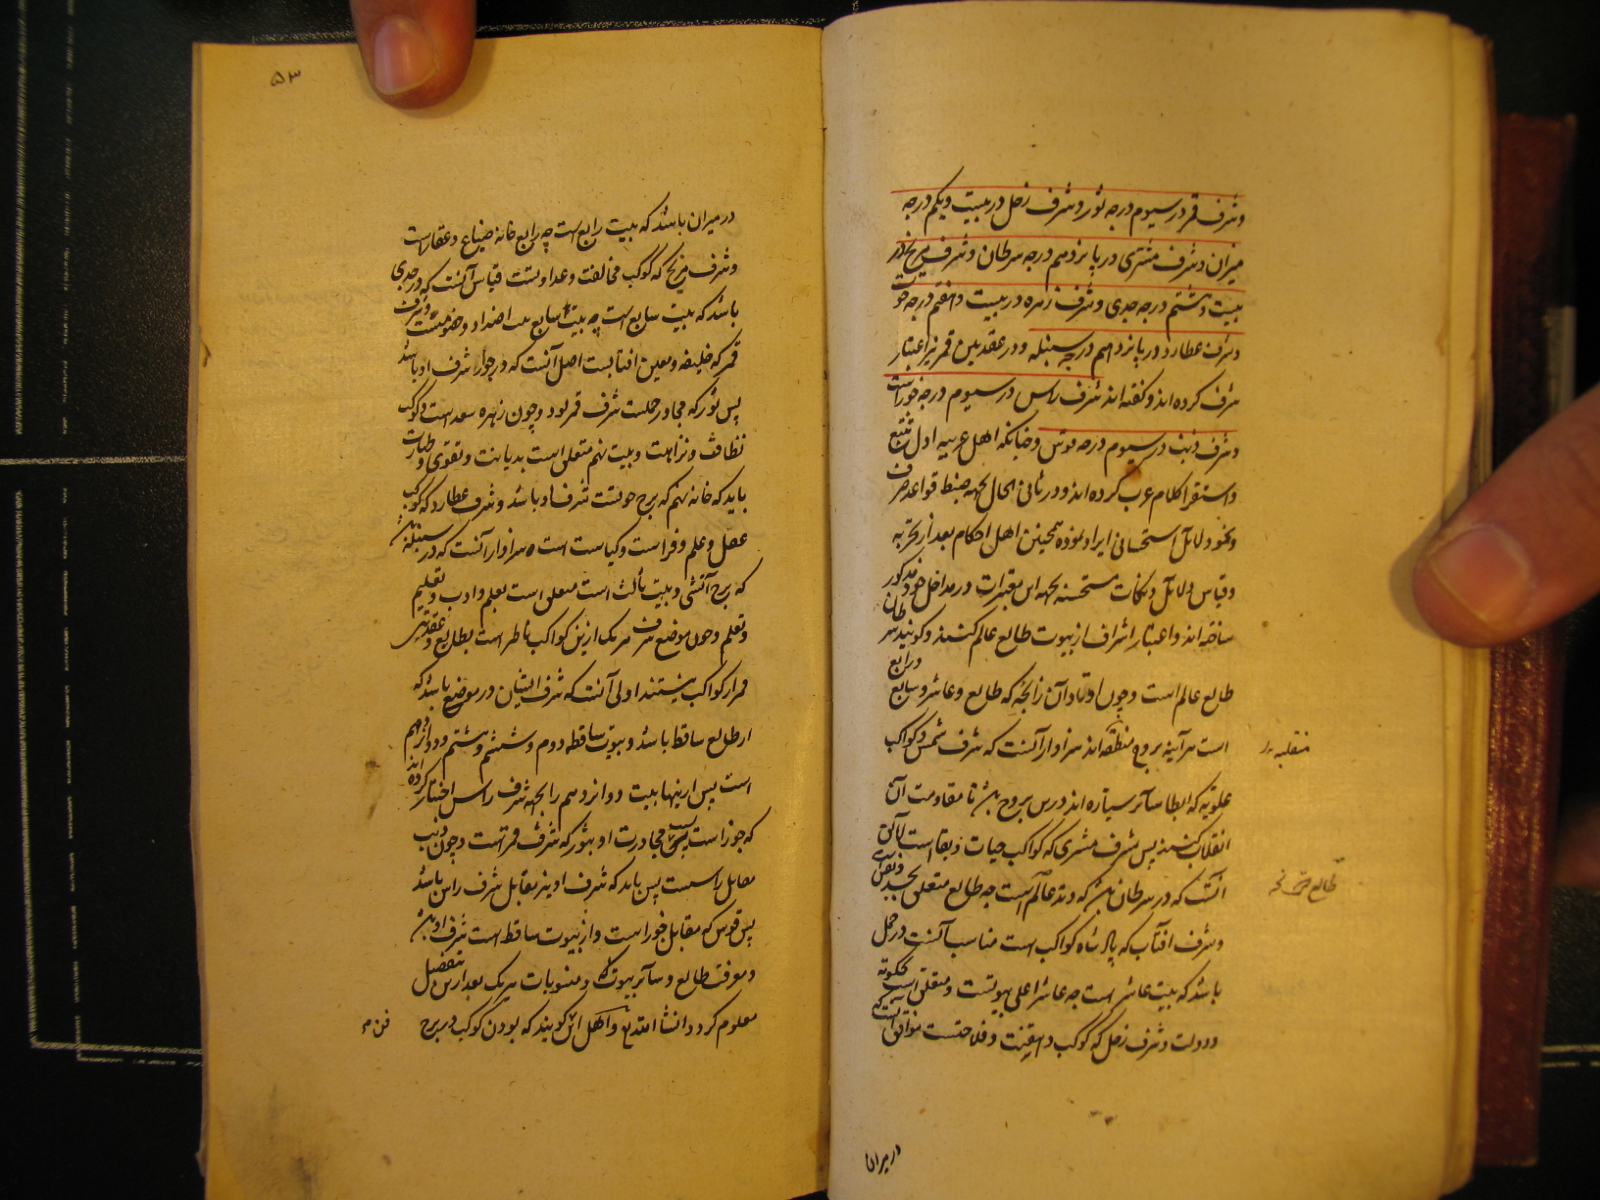 وشرف قمر در سیوم درجه ثور وشرف زحل در بیست ویکم درجه
میزان وشرف مشتری در پانزدهم درجه سرطان وشرف مریخ در
بیست وهشتم درجه جدی وشرف زهره در بیست وهفتم درجه حوت
وشرف عطارد در پانزدهم درجه سنبله ودر عقدتین قمر نیز اعتبار
شرف کرده اند وگفته اند شرف راس در سیوم درجه جوزاست
وشرف ذنب در سیوم درجه قوس وچنانکه اهل عربیه اول تتبع
واستقرا کلام عرب کرده اند ودر ثانی الحال بجهه ضبط قواعد صرف
ونحو دلائل استحسانی ایراد نموده همچنین اهل احکام بعد از تجربه
وقیاس دلائل ونکات مستحسنه بجهه این مقررات در مداخل خود مذکور
ساخته اند واعتبار اشراف از بیوت طالع عالم کنند وگویند سرطان
طالع عالم است وچون اوتاد آن زایجه که طالع وعاشر وسابع ورابع
است هر آینه بروج منقلبه اند سزاوار آنست که شرف شمس وکواکب
منقلبه
علویه که ابطا سائر سیاره اند درین بروج باشد تا مقاومت آن
انقلاب کنند پس شرف مشتری که کواکب حیات وبقا است لائق
آنست که در سرطان باشد که وتد عالم است چه طالع متعلق بجسد ونفس است
طالع
وشرف افتاب که پادشاه کواکب است مناسب آنست در حمل
باشد که بیت عاشر است چه عاشر اعلی بیوتست ومتعلق است بحکومت
ودولت وشرف زحل که کوکب دهقنت وفلاحتست موافق آنست که
در میزان
۵۳
در میزان باشد که بیت رابع است چه رابع خانه ضیاع وعقار است
وشرف مریخ که کوکب مخالفت وعداوتست قیاس آنست که در جدی
باشد که بیت سابع است چه بیت سابع بیت اضداد وخصومتست وشرف
قمر که خلیفه ومعین افتابست اصل آنست که در جوار شرف او باشد
پس ثور که مجاور حملست شرف قمر بود وچون زهره سعد است وکوکب
نظافت ونزاهت وبیت نهم متعلق است بدیانت وتقوی وطهارت
باید که خانه نهم که برج حوتست شرف او باشد وشرف عطارد که کوکب
عقل وعلم وفراست وکیاست است سزاوار آنست که در سنبله باشد
که برج آتشی وبیت ثالث است متعلق است بعلم وادب وتعلیم
وتعلم وچون موضع شرف هر یک ازین کواکب ناظر است بطالع وعقدتین
قمر از کواکب نیستند اولی آنست که شرف ایشان در موضع باشد که
از طالع ساقط باشد وبیوت ساقطه دوم وششم وهشتم ودوازدهم
است پس ازینها بیت دوازدهم را بجهه شرف راس اختیار کرده اند
که جوزا است بسبب مجاورت او بثور که شرف قمر است وچون ذنب
مقابل راسست پس باید که شرف او نیز مقابل شرف راس باشد
پس قوس که مقابل جوزا است واز بیوت ساقط است شرف او باشد
ومعرفت طالع وسائر بیوت ومنسوبات هر یک بعد ازین بتفصیل
معلوم گردد انشا الله تع واهل این فن گویند که بودن کوکب در برج